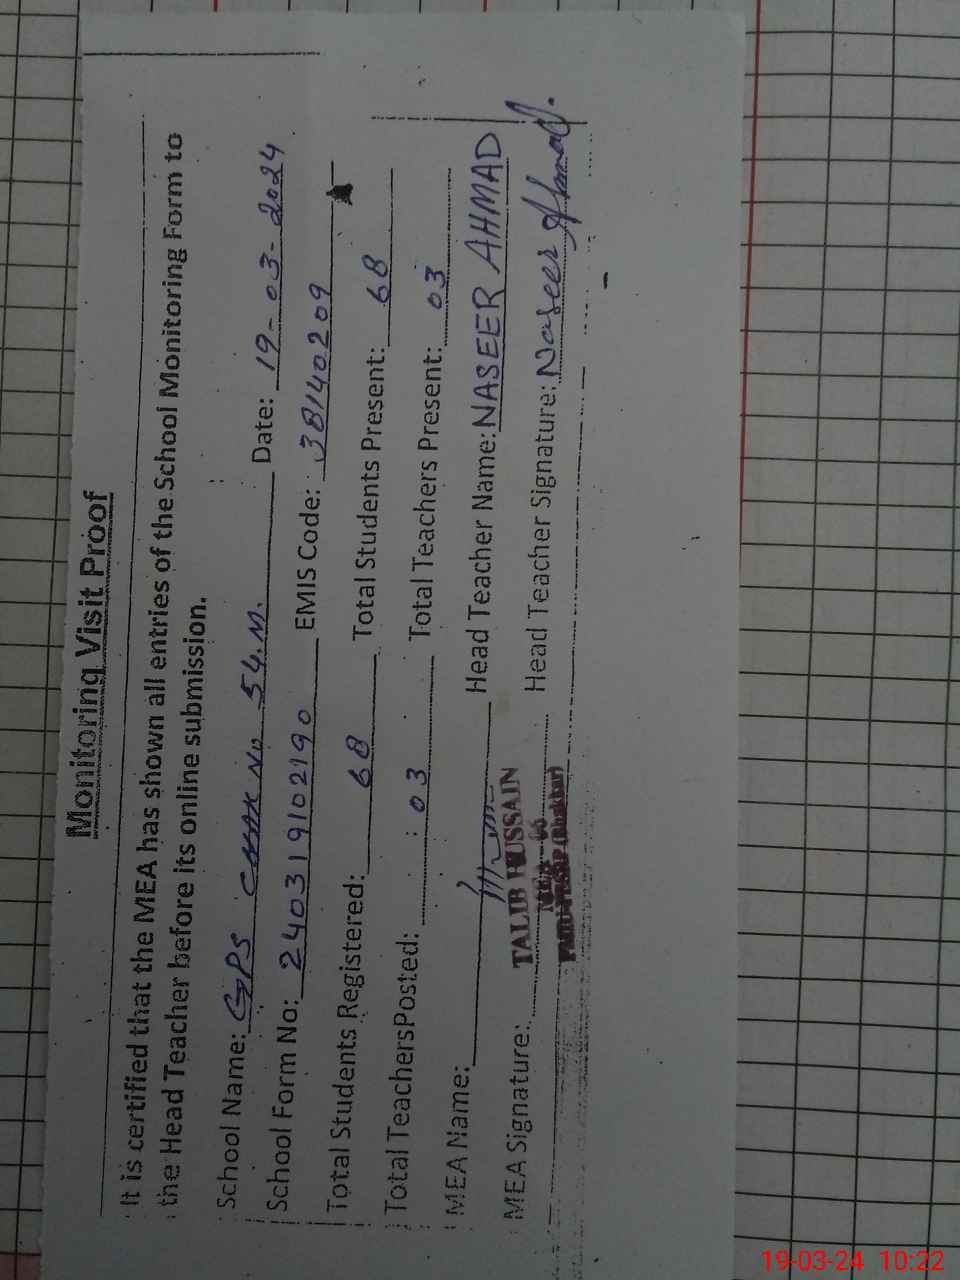 Monitoring Visit Proof
It is certified that the MEA has shown all entries of the School Monitoring Form to
the Head Teacher before its online submission.
School Name: GPS CHAK No 54.M. Date: 19-03-2024
School Form No: 240319102190 EMIS Code: 38140209
Total Students Registered: 68 Total Students Present: 68
Total TeachersPosted: 03 Total Teachers Present: 03
MEA Name: Head Teacher Name: NASEER AHMAD
TALIB HUSSAIN
MEA Signature: Head Teacher Signature: Naseer Ahmad.
19-03-24 10:22